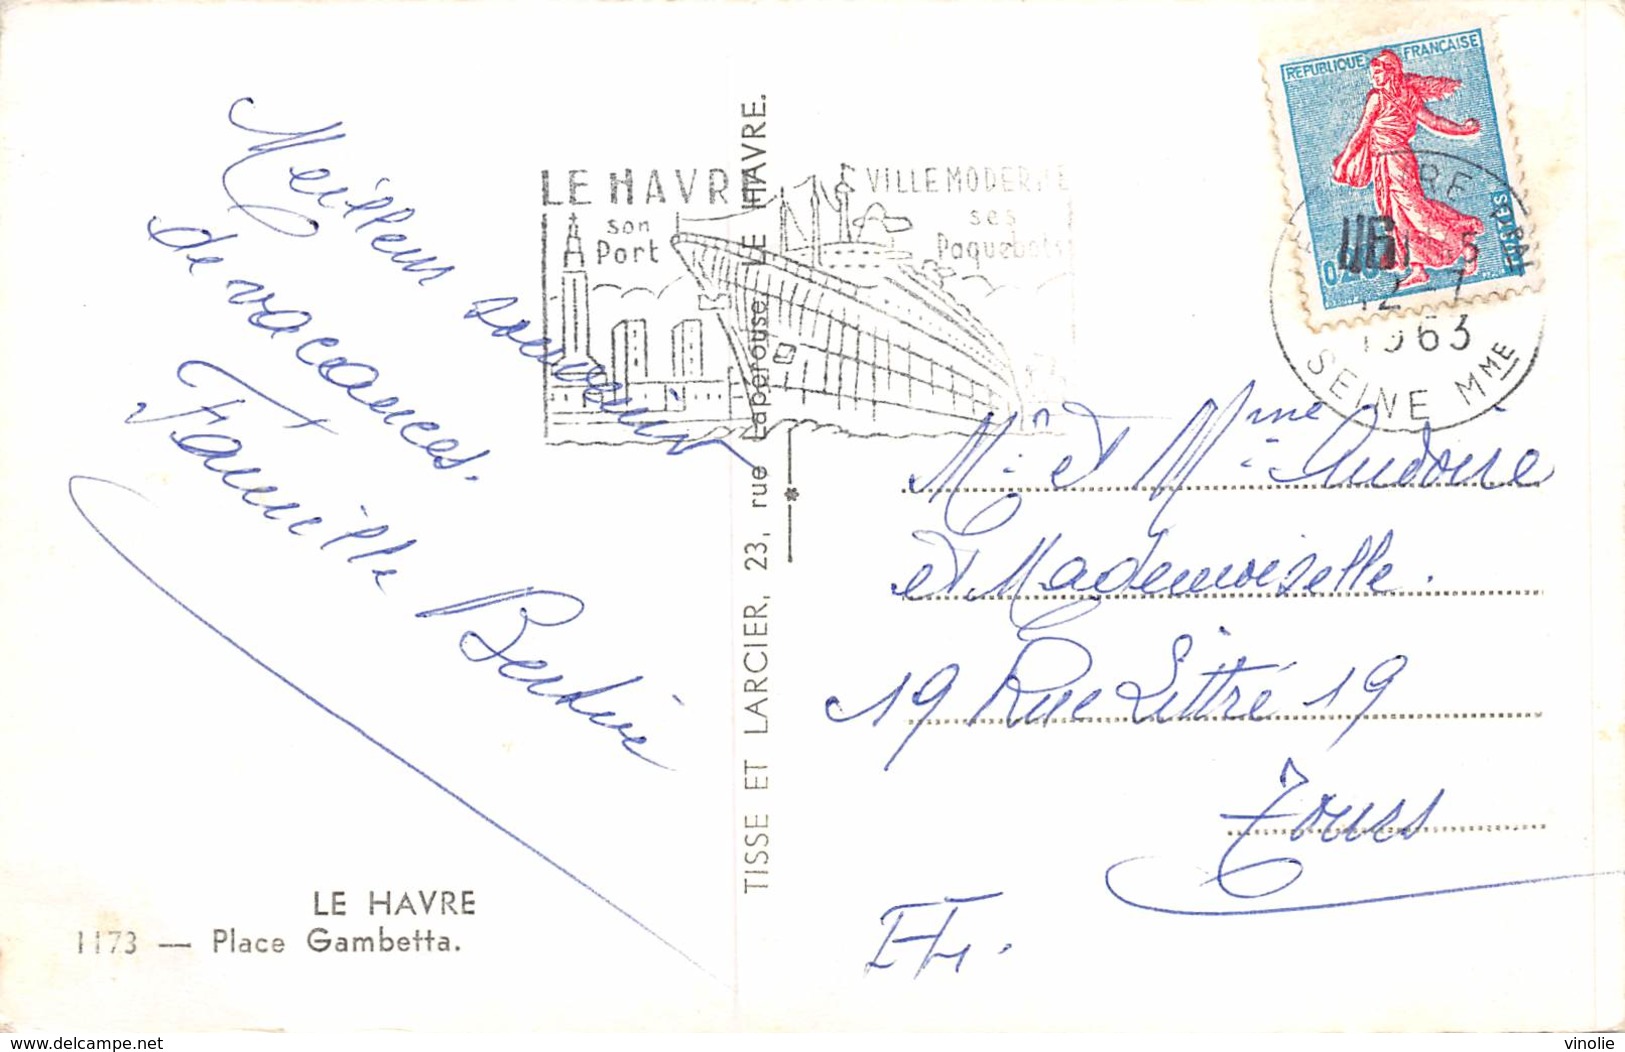 Meilleur souvenir
de vacances.
Famille
LE HAVRE
1173 — Place Gambetta.
TISSE ET LARCIER, 23, rue Laperouse, LE HAVRE.
LE HAVRE
son
Port
VILLE MODERNE
ses
Paquebots
REPUBLIQUE FRANÇAISE
POSTES
12 - 7
1963
SEINE MME
Mr et Mme Audoire
et Mademoiselle.
19 Rue Littré 19
Tours
I-L.
www.delcampe.net
vinolie